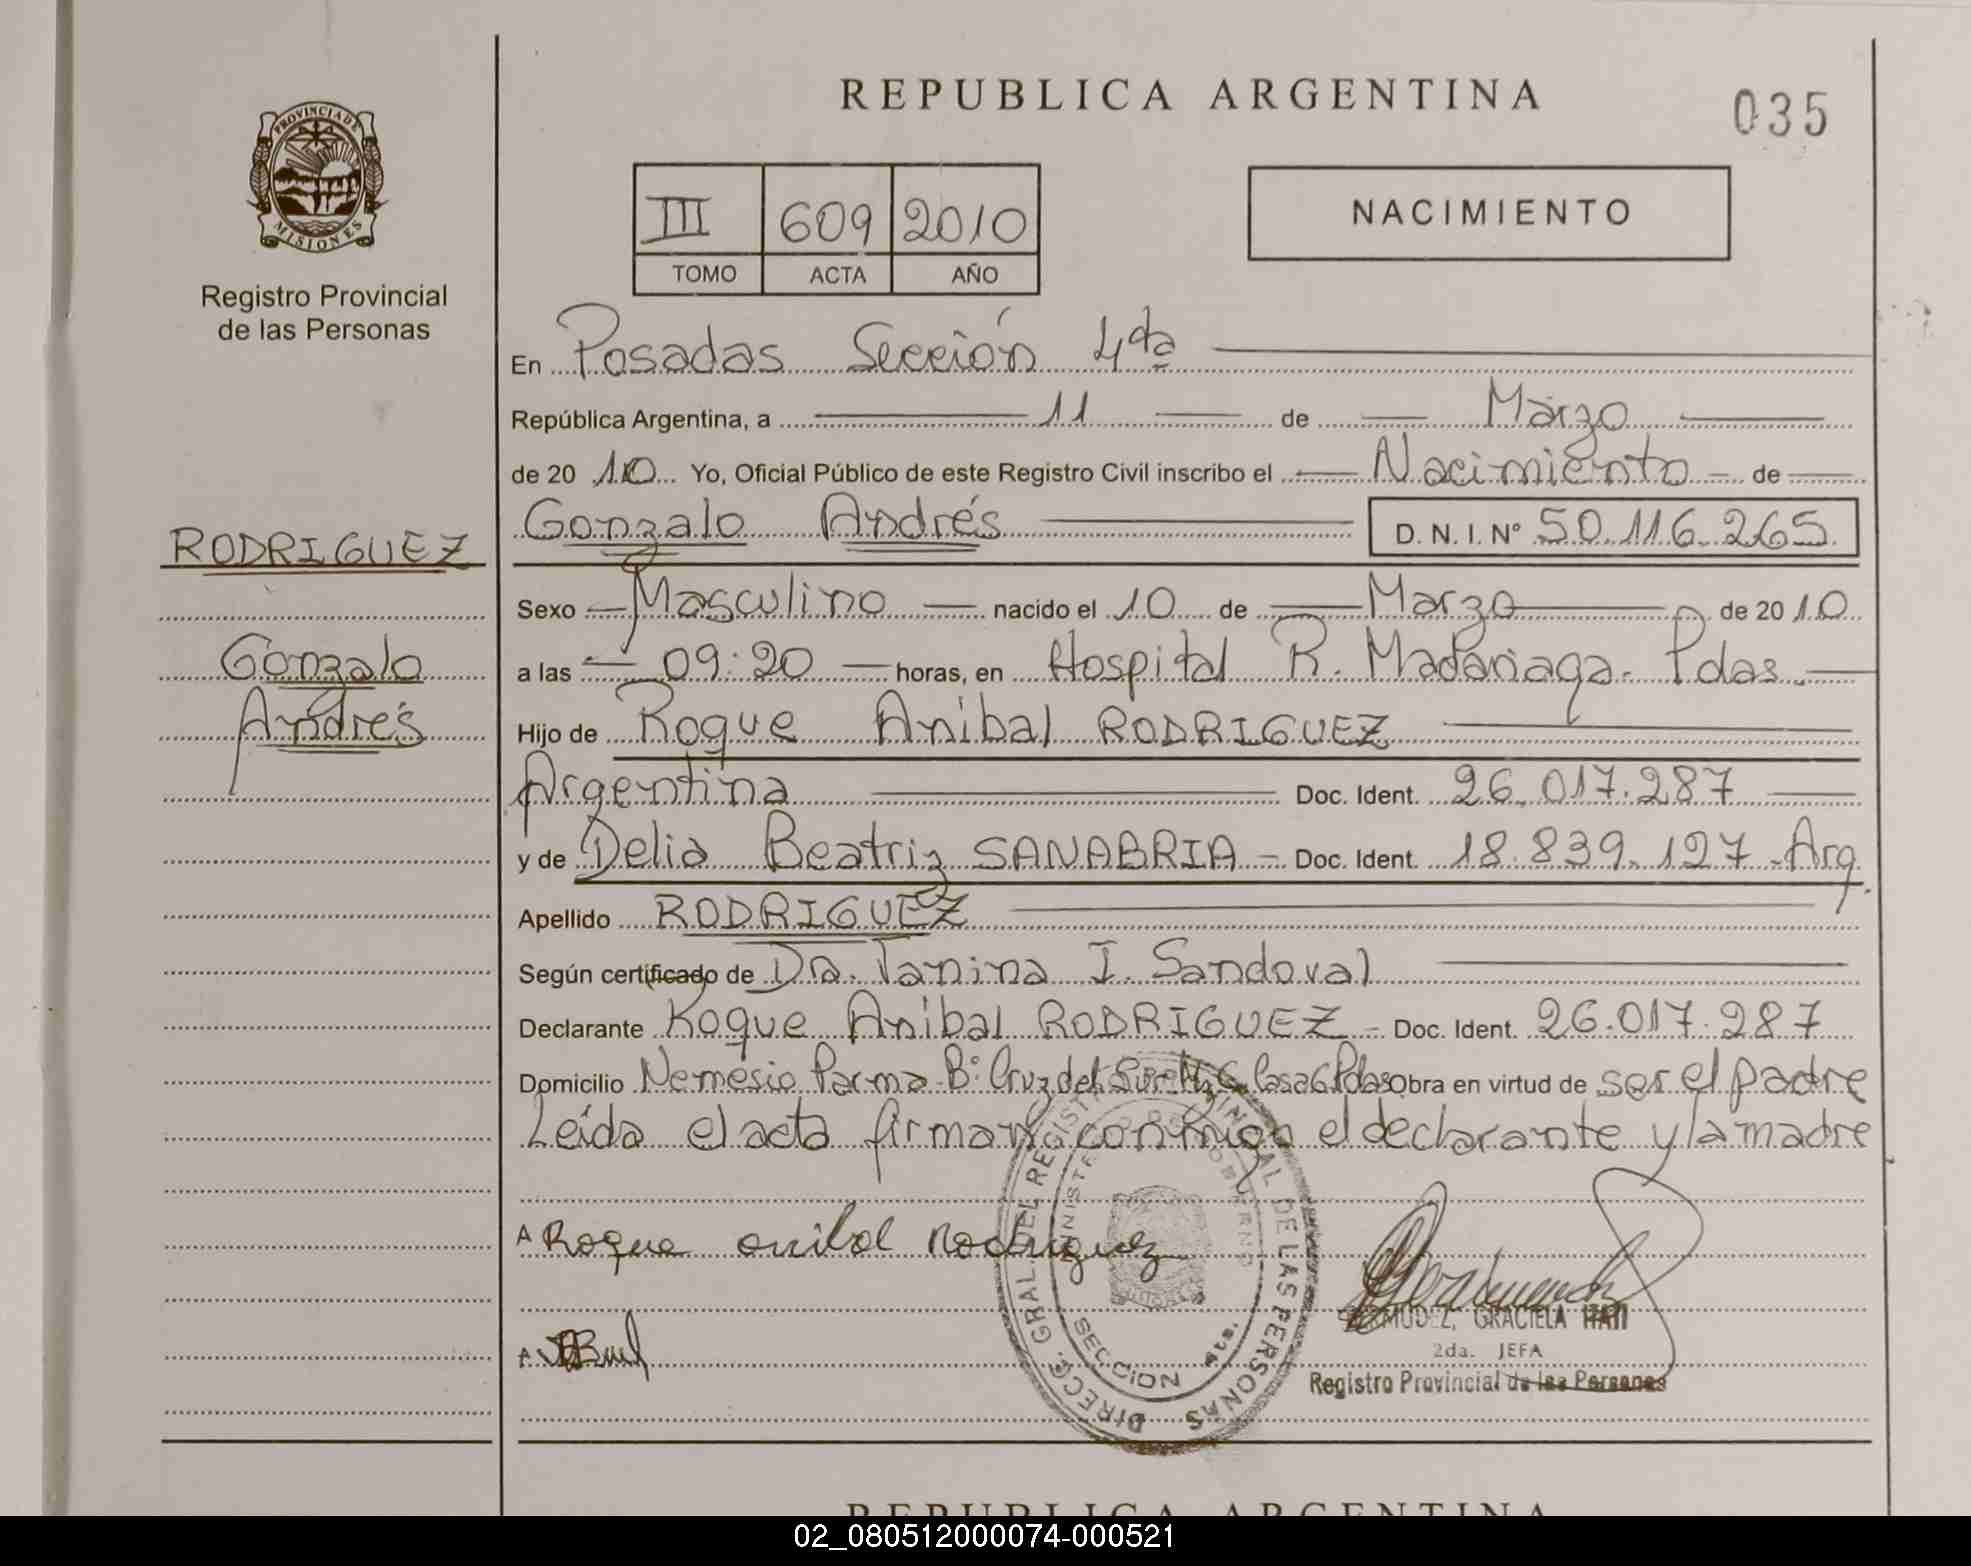 REPUBLICA ARGENTINA
035
PROVINCIA DE
MISIONES
Registro Provincial
de las Personas
III 609 2010
TOMO ACTA AÑO
NACIMIENTO
En Posadas Sección 4ta
República Argentina, a 11 de Marzo
de 20 10 Yo, Oficial Público de este Registro Civil inscribo el Nacimiento de
RODRIGUEZ
Gonzalo Andrés D. N. I. Nº 50.116.265
Sexo Masculino nacido el 10 de Marzo de 20 10
Gonzalo
Andrés
a las 09:20 horas, en Hospital R. Madariaga - Pdas.
Hijo de Roque Anibal RODRIGUEZ
Argentina Doc. Ident. 26.017.287
y de Delia Beatriz SANABRIA - Doc. Ident. 18.839.127 - Arg.
Apellido RODRIGUEZ
Según certificado de Dra. Tanina I. Sandoval
Declarante Roque Anibal RODRIGUEZ - Doc. Ident. 26.017.287
Domicilio Nemesio Parma Bº Cruz del Sur Casa 6 Pdas Obra en virtud de ser el padre
Leída el acta firman conmigo el declarante y la madre
A Roque anibal Rodriguez
A
DIRECC. GRAL. DEL REGISTRO PROVINCIAL DE LAS PERSONAS
MINISTERIO DE GOBIERNO
SECCION 4ta.
BERMUDEZ, GRACIELA ITATI
2da. JEFA
Registro Provincial de las Personas
REPUBLICA ARGENTINA
02_080512000074-000521